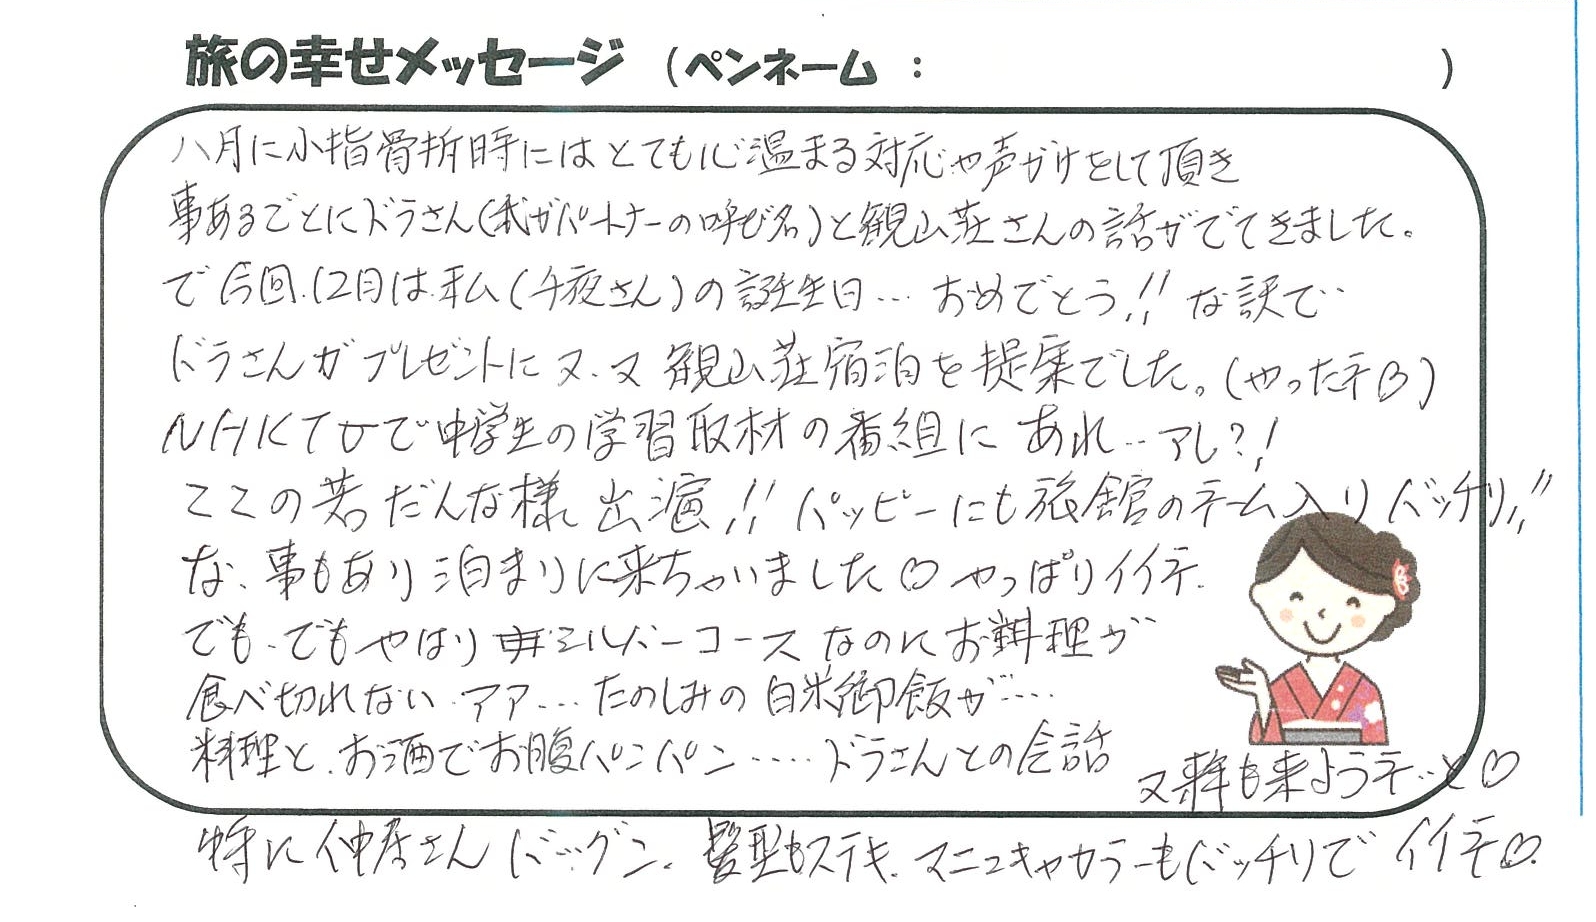 旅の幸せメッセージ (ペンネーム : )
八月に小指骨折時にはとても心温まる対応や声がけをして頂き
事あるごとにドラさん(我がパートナーの呼び名)と観山荘さんの話がでてきました。
で今回、12月は私(千夜さん)の誕生日… おめでとう!! な訳で‥
ドラさんがプレゼントに又、又 観山荘宿泊を提案でした。(やったネ♡)
NHKTVで中学生の学習取材の番組に あれ‥アレ?!
ココの若だんな様 出演!! ハッピーにも旅館のネーム入り バッチリ!!
な、事もあり 泊まりに来ちゃいました♡ やっぱりイイネ.
でも、でもやはり シルバーコースなのにお料理が
食べ切れない アア… たのしみの白米御飯が…
料理と、お酒でお腹パンパン…‥ ドラさんとの会話
又来年も来ようネ‥と♡
特に仲居さん バッグン、髪型もステキ、マニュキャカラーもバッチリで イイネ♡.